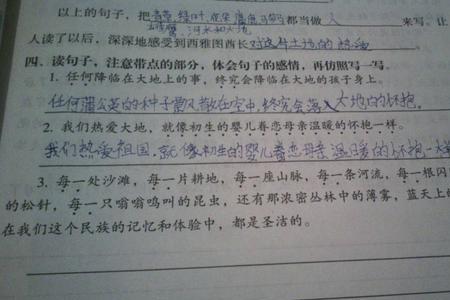 以上的句子,把青草、绿叶、花朵、 都当做人来写。让
河水和大地
人读了以后,深深地感受到西雅图酋长对这片土地的热爱
四、读句子,注意带点的部分,体会句子的感情,再仿照写一写。
1. 任何降临在大地上的事,终究会降临在大地的孩子身上。
任何蒲公英的种子 风散在空中,终究会落入大地的怀抱。
2. 我们热爱大地,就像初生的婴儿眷恋母亲温暖的怀抱一样。
我们热爱祖国,就像初生的婴儿眷恋母亲温暖的怀抱一样
3. 每一处沙滩,每一片耕地,每一座山脉,每一条河流,每一根闪
的松针,每一只嗡嗡鸣叫的昆虫,还有那浓密丛林中的薄雾,蓝天上的
在我们这个民族的记忆和体验中,都是圣洁的。